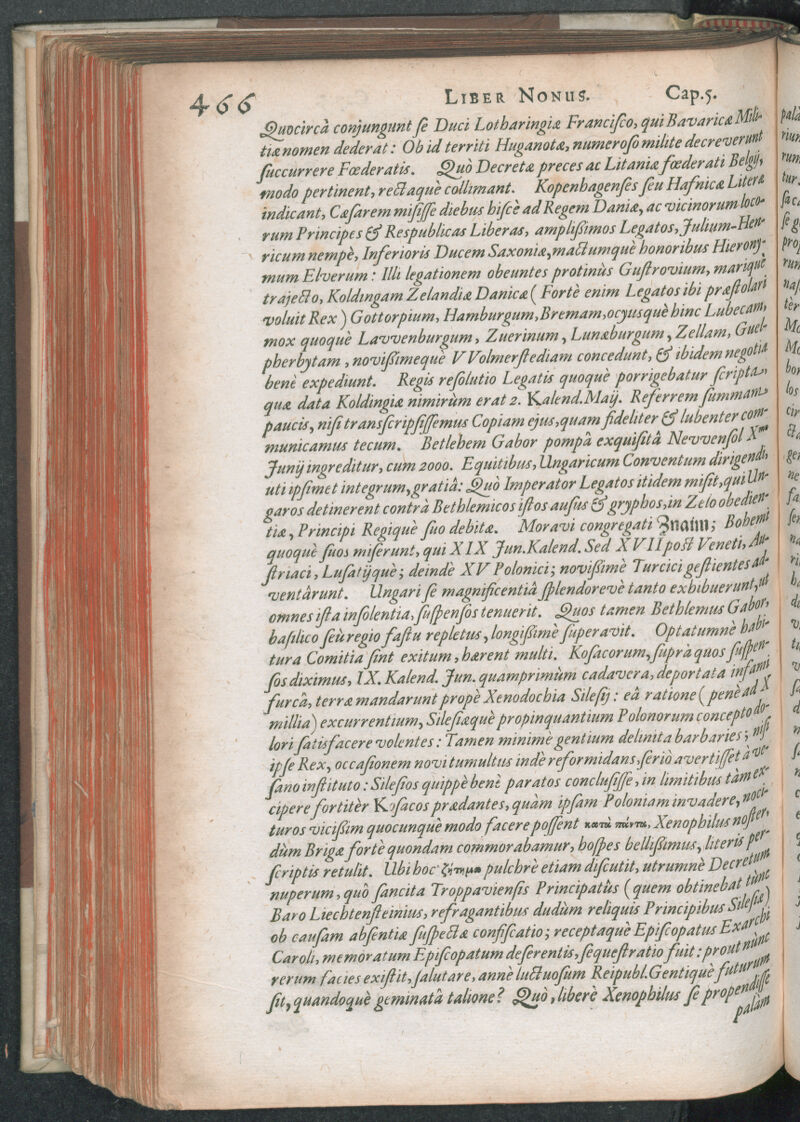 466 LIBER NONUS. Cap.5.
Quocircà conjungunt ſe Duci Lotharingiæ Franciſco, qui Bavaricæ Mili-
tiæ nomen dederat: Ob id territi Huganotæ, numeroſo milite decreverunt
ſuccurrere Fœderatis. Quò Decretæ preces ac Litaniæ fœderati Belgij,
modo pertinent, rectaquè collimant. Kopenhagenſes ſeu Hafnicæ Literæ
indicant, Cæſarem miſiſſe diebus hiſcè ad Regem Daniæ, ac vicinorum loco-
rum Principes & Respublicas Liberas, ampliſſimos Legatos, Julium-Hen-
ricum nempè, Inferioris Ducem Saxoniæ, mactumquè honoribus Hierony-
mum Elverum: Illi legationem obeuntes protinùs Guſtrovium, mariquè
trajecto, Koldingam Zelandiæ Danicæ (Fortè enim Legatos ibi præſtolari
voluit Rex) Gottorpium, Hamburgum, Bremam, ocyusquè hinc Lubecam,
mox quoquè Lavvenburgum, Zuerinum, Lunæburgum, Zellam, Guel-
pherbytam, noviſſimequè VVolmerſtediam concedunt, & ibidem negotia
benè expediunt. Regis reſolutio Legatis quoquè porrigebatur ſcripta,
quæ data Koldingiæ nimirùm erat 2. Kalend. Maij. Referrem ſummam
paucis, niſi tranſcripſiſſemus Copiam ejus, quam fideliter & lubenter com-
municamus tecum. Betlehem Gabor pompâ exquiſitâ Nevvenſol Xmo
Junij ingreditur, cum 2000. Equitibus, Ungaricum Conventum dirigendi,
uti ipſimet integrum, gratiâ: Quò Imperator Legatos itidem miſit, qui Un-
garos detinerent contrà Bethlemicos iſtos auſus & gryphos, in Zelo obedien-
tiæ, Principi Regiquè ſuo debitæ. Moravi congregati Znaim; Bohemi
quoquè ſuos miſerunt, qui XIX Jun. Kalend. Sed XVII poſt Veneti, Au-
ſtriaci, Luſatijquè; deindè XV Polonici; noviſſimè Turcici geſtientes ad-
ventârunt. Ungari ſe magnificentiâ ſplendorevè tanto exhibuerunt, ut
omnes iſta inſolentia, ſuſpenſos tenuerit. Quos tamen Bethlemus Gabor,
baſilico ſeù regio faſtu repletus, longiſſimè ſuperavit. Optatumnè habi-
tura Comitia ſint exitum, hærent multi. Koſacorum, ſuprà quos ſuſpen-
ſos diximus, IX. Kalend. Jun. quamprimùm cadavera, deportata infami
furcâ, terræ mandarunt propè Xenodochia Sileſij: eâ ratione (penè ad X
millia) excurrentium, Sileſiæquè propinquantium Polonorum concepto do-
lori ſatisfacere volentes: Tamen minimè gentium delinita barbaries; niſi
ipſe Rex, occaſionem novi tumultus indè reformidans, ſeriò avertiſſet à ve-
ſano inſtituto: Sileſios quippè benè paratos concluſiſſe, in limitibus tàm ex-
cipere fortitèr Koſacos prædantes, quàm ipſam Poloniam invadere, noci-
turos viciſſim quocunquè modo facere poſſent κατὰ πάντα, Xenophilus noſter,
dùm Brigæ fortè quondam commorabamur, hoſpes belliſſimus, literis per-
ſcriptis retulit. Ubi hoc ζήτημα pulchrè etiam diſcutit, utrumnè Decretum
nuperum, quò ſancita Troppavienſis Principatùs (quem obtinebat tùnc
Baro Liechtenſteinius, refragantibus dudùm reliquis Principibus Sileſiæ)
ob cauſam abſentiæ ſuſpectæ confiſcatio; receptaquè Epiſcopatus Exarchi
Caroli, memoratum Epiſcopatum deſerentis, ſequeſtratio fuit: prout nùnc
rerum facies exiſtit, ſalutare, annè luctuoſum Reipubl. Gentiquè futurum
ſit, quandoquè geminatâ talione? Quò, liberè Xenophilus ſe propendiſſe
palàm